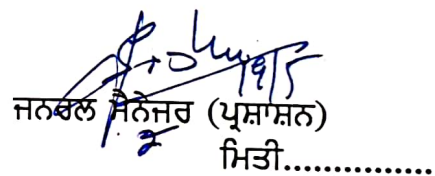 19/5
ਜਨਰਲ ਮੈਨੇਜਰ (ਪ੍ਰਸ਼ਾਸ਼ਨ)
ਮਿਤੀ...............